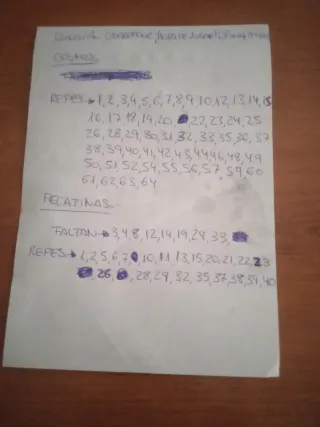 REPES→1,2,3,4,5,6,7,8,9,10,12,13,14,15
16,17,18,19,20 22,23,24,25
26,28,29,30,31,32,33,35,36,37
38,39,40,41,42,43,44,46,48,49
50,51,52,54,55,56,57,59,60
61,62,63,64
PECATINAS
FALTAN→3,4,8,12,14,19,29,33,
REPES→1,2,5,6,7 10,11,13,15,20,21,22,23
26, 28,29,32,35,37,38,39,40